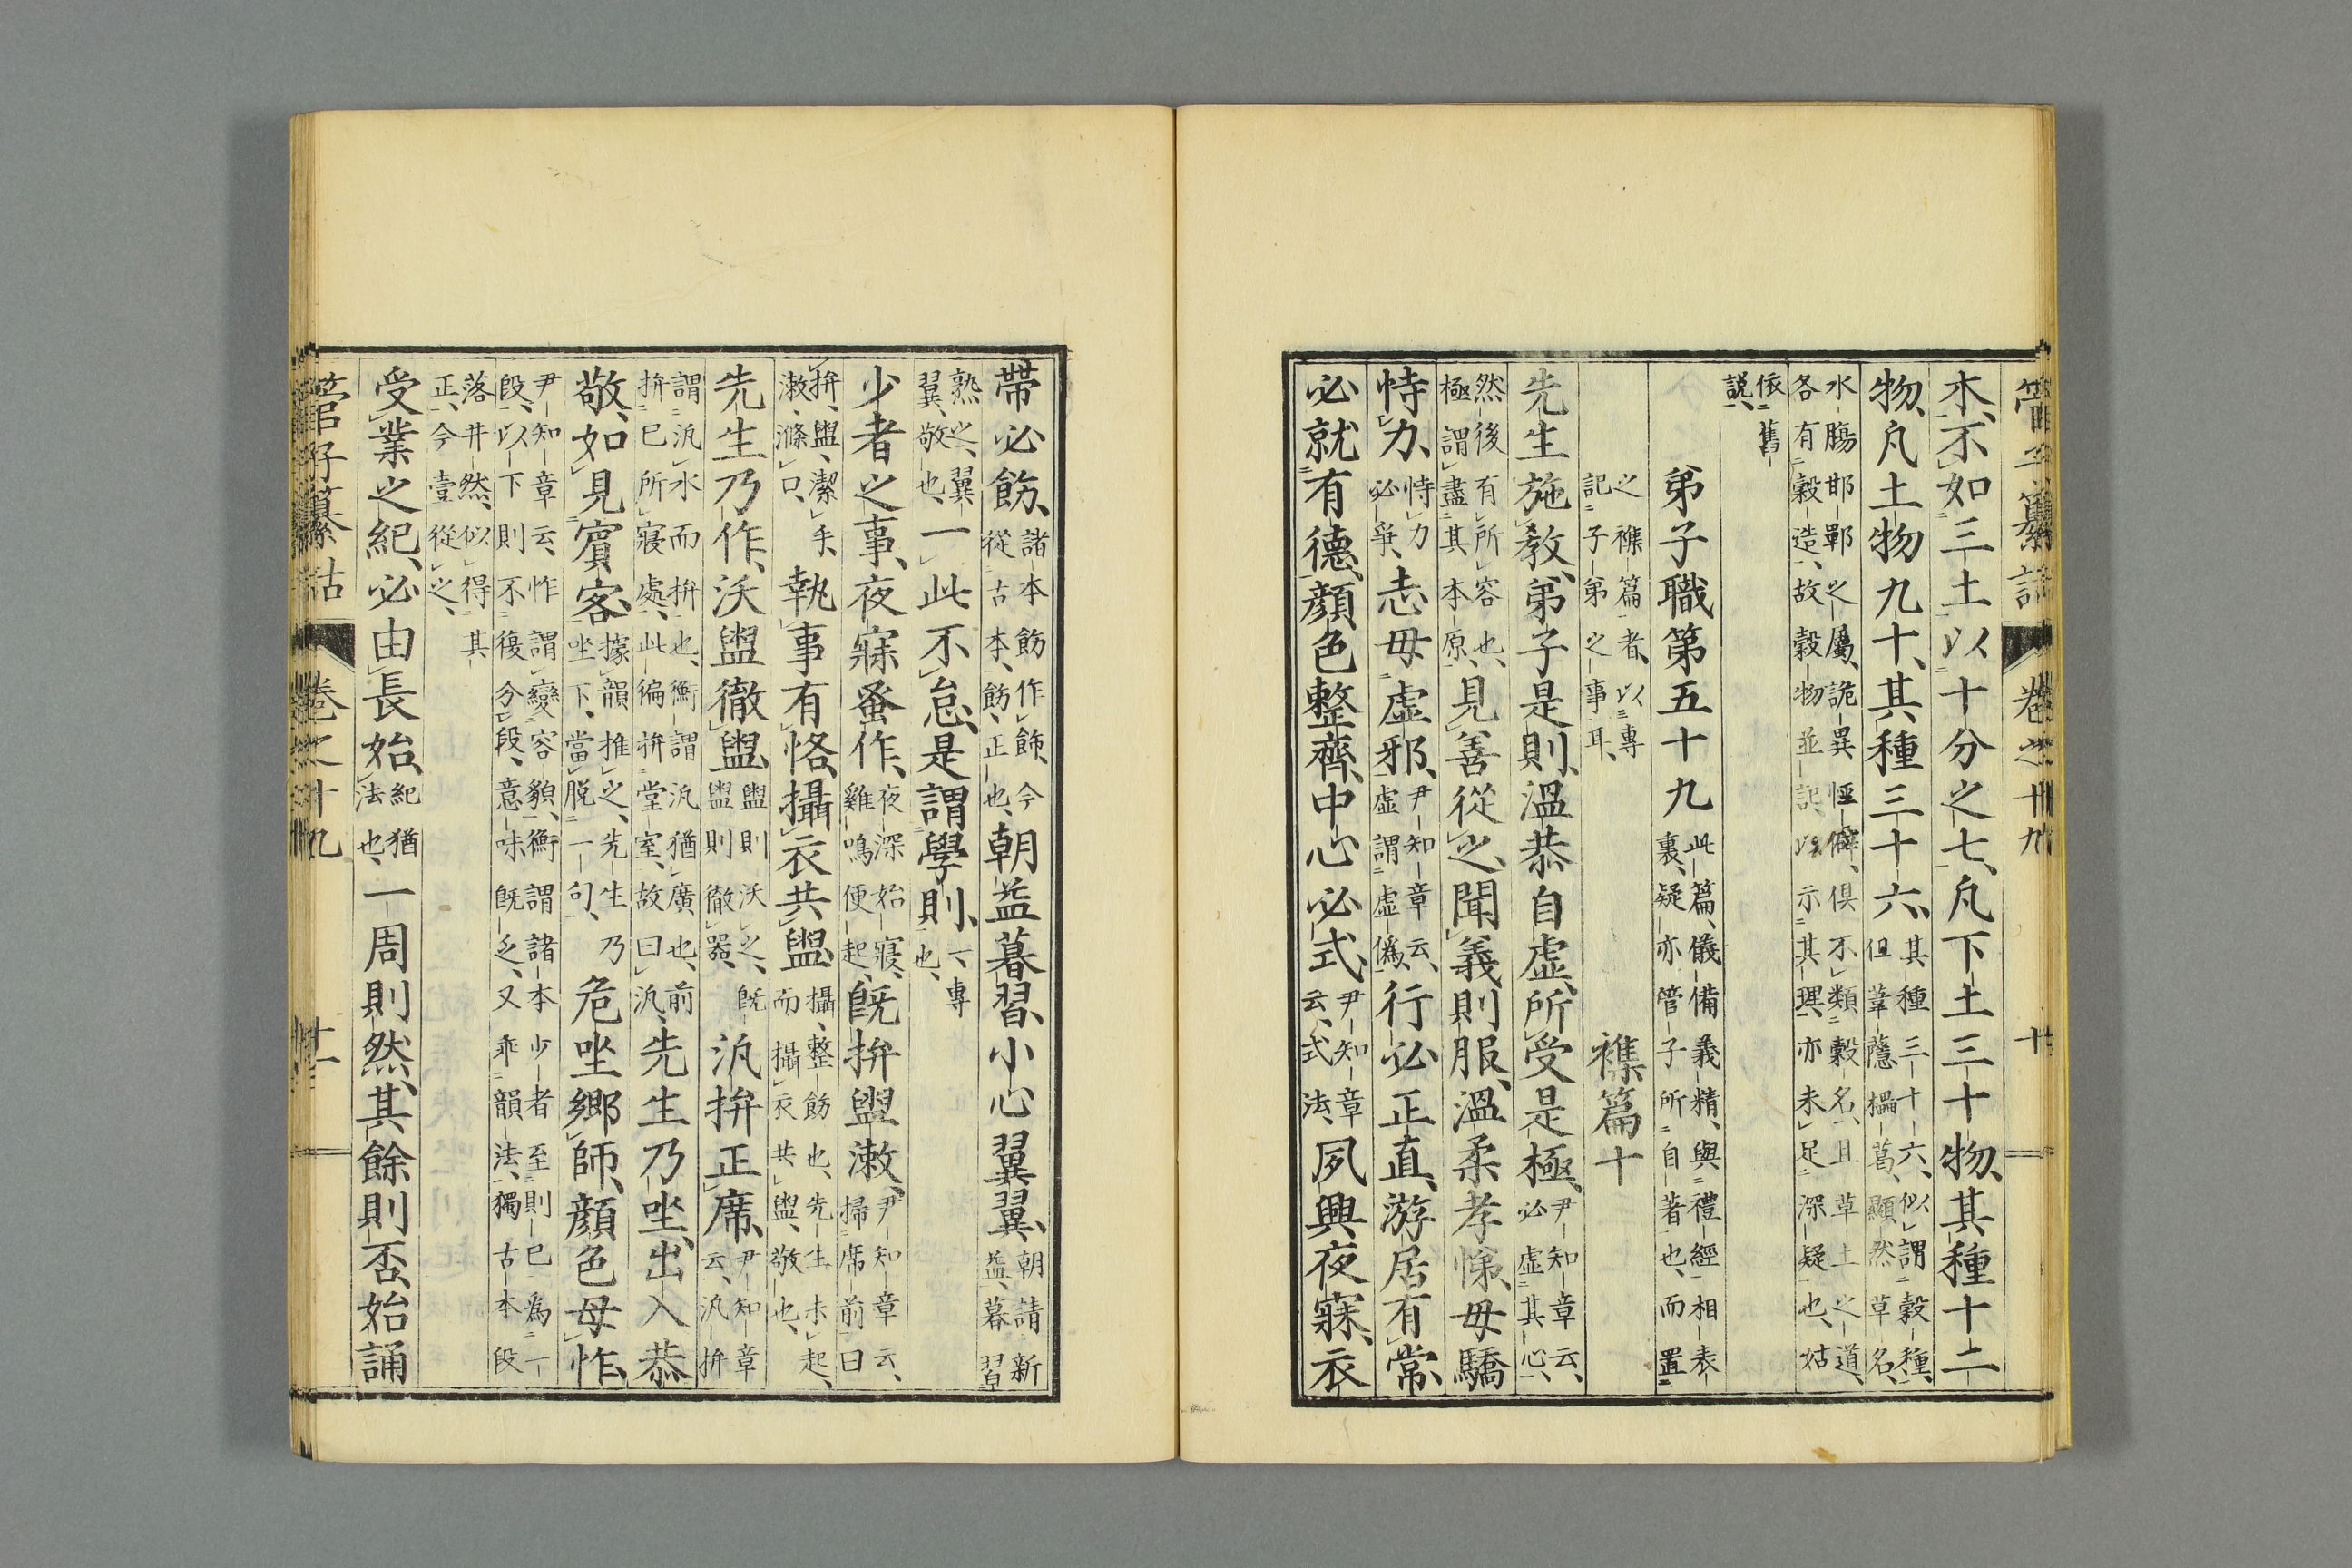 管子纂詁 卷之十九 十
木、不如三土以十分之七、凡下土三十物、其種十二
物、凡土物九十、其種三十六、其種三十六、似謂穀種、但葦蘟櫑葛、顯然草名、
水腸邯鄲之屬、詭異怪僻、俱不類穀名、且草土之道、各有穀造、故穀物並記、以示其理、亦未足深疑也、姑
依舊說、
弟子職第五十九 此篇、儀備義精、與禮經相表裏、疑亦管子所自著也、而置
之襍篇者、以專記子弟之事耳、 襍篇十
先生施教、弟子是則、溫恭自虛、所受是極、尹知章云、必虛其心、
然後有所容也、極謂盡其本原、見善從之、聞義則服、溫柔孝悌、毋驕
恃力、恃力必爭、志毋虛邪、尹知章云、虛謂虛偽、行必正直、游居有常、
必就有德、顏色整齊、中心必式、尹知章云、式法、夙興夜寐、衣
帶必飭、諸本飭作飾、今從古本、飭、正也、朝益暮習、小心翼翼、朝請新益、暮習
熟之、翼翼、敬也、一此不怠、是謂學則、一、專也、
少者之事、夜寐蚤作、夜深始寢、雞鳴便起、旣拚盥漱、尹知章云、掃席前曰
拚、盥、潔手、漱、滌口、執事有恪、攝衣共盥、攝、整飭也、先生未起、而攝衣共盥、敬也、
先生乃作、沃盥徹盥、盥則沃之、旣盥則徹器、汎拚正席、尹知章云、汎拚
謂汎水而拚也、衡謂汎猶廣也、前拚已所寢處、此徧拚堂室、故曰汎、先生乃坐、出入恭
敬、如見賓客、據韻推之、先生乃坐下、當脫一句、危坐鄉師、顏色毋怍、
尹知章云、怍謂變容貌、衡謂諸本少者至則已爲一段、以下則不復分段、意味旣乏、又乖韻法、獨古本段
落井然、似得其正、今壹從之、
受業之紀、必由長始、紀猶法也、一周則然、其餘則否、始誦
管子纂詁 卷之十九 十一